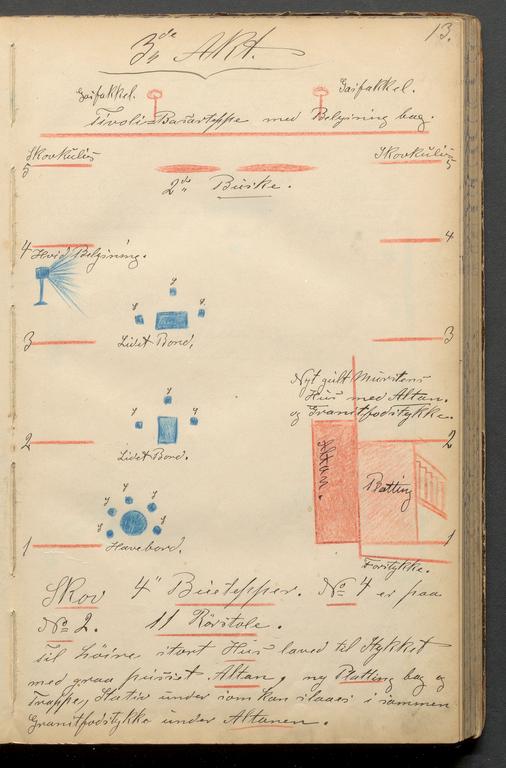 13.
3de Akt.
Gasfakkel. Gasfakkel.
Tivoli=Basartæppe med Belysning bag.
Skovkulis Skovkulis
5 5
2de Buske.
4 Hvid Belysning. 4
y
y y
Lidet Bord.
3 3
Nyt gult Murstens
Hus med Altan.
og Granitfodstykke.
y
y y
2 2
Lidet Bord.
Altan.
Platting
y y y
y y
1 Havebord. 1
Forstykke.
Skov 4" Buetepper. No 4 er paa
No 2. 11 Rörstole.
Til Höire stort Hus lavet til Stykket
med graa pudset Altan, ny Platting bag og
Trappe, Stativ under som kan slaaes i sammen
Granitfodstykke under Altanen.